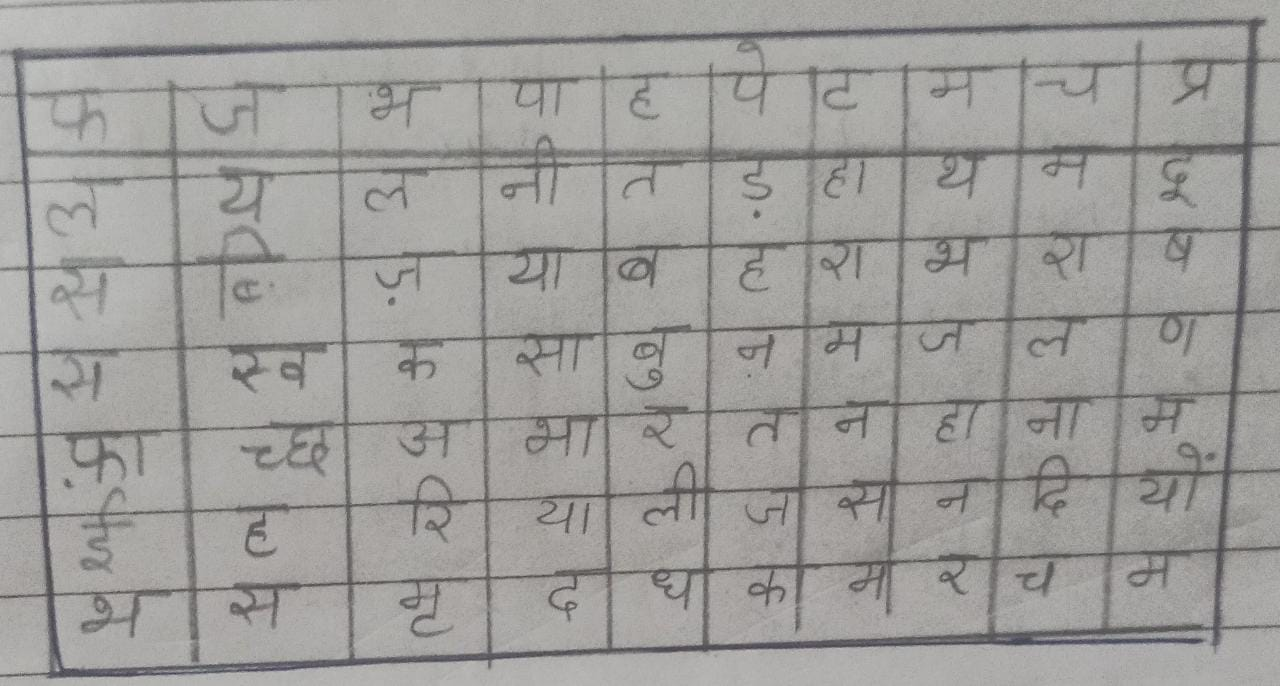 फ ज भ पा ह पे ट म च प्र
ल य ल नी त ड़ हा थ म दू
स ज़ या ब ह रा भ रा ष
स स्व क सा बु न म ज ल ण
फ़ा च्छ अ भा र त न हा ना म
ई ह रि या ली ज स न दि यों
भ स मृ द ध का म र च म